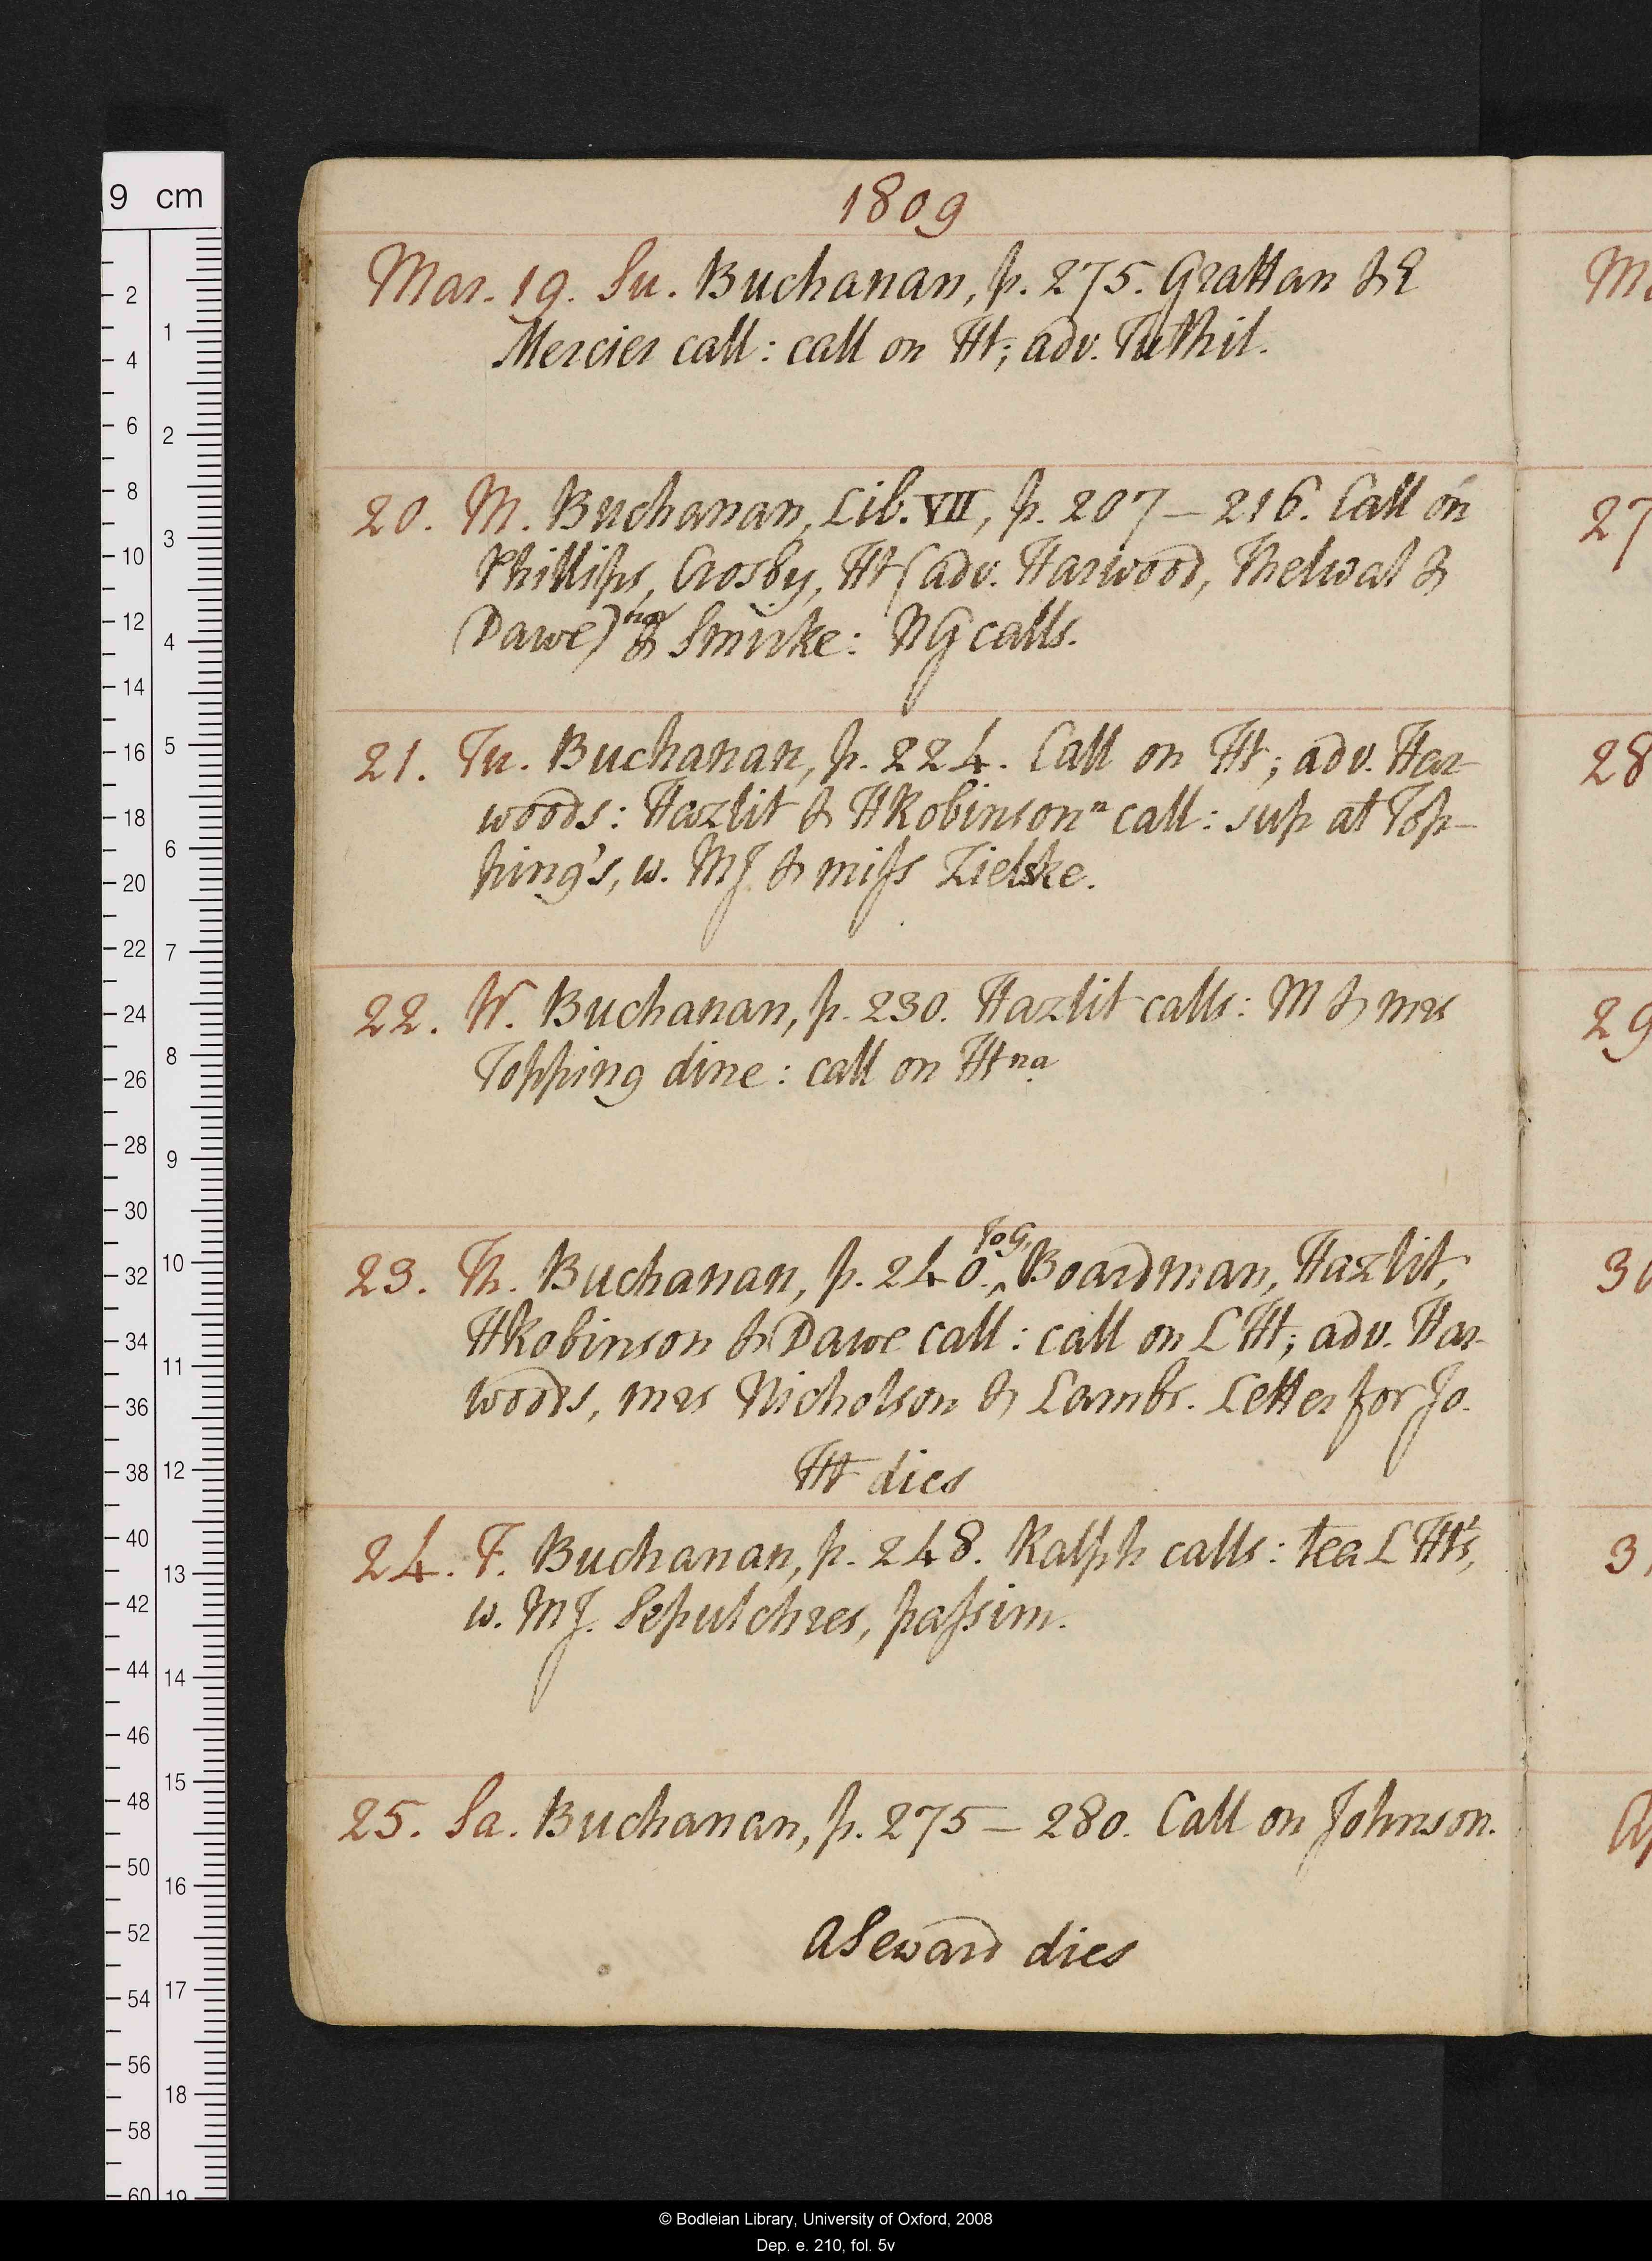 1809
Mar. 19. Su. Buchanan, p. 275. Grattan & E
Mercier call: call on Ht; adv. Tuthil.
20. M. Buchanan, Lib. VII, p. 207 – 216. Call on
Phillips, Crosby, Ht (adv. Harwood, Thelwal &
Dawe) & Smirke: NG calls.
21. Tu. Buchanan, p. 224. Call on Ht; adv. Har-
woods: Hazlit & HRobinson n call: sup at Top-
ping's, w. MJ & miss Zielske.
22. W. Buchanan, p. 230. Hazlit calls: M & mrs
Topping dine: call on Ht na
23. Th. Buchanan, p. 240. ^ Jo G, Boardman, Hazlit,
HRobinson & Dawe call: call on L Ht; adv. Har-
woods, mrs Nicholson & Lambs. Letter for Jo.
Ht dies
24. F. Buchanan, p. 248. Ralph calls: tea L Ht's,
w. MJ. Sepulchres, passim.
25. Sa. Buchanan, p. 275 – 280. Call on Johnson.
ASeward dies
M
27
28
29
30
3
9 cm
2
4
6
8
10
12
14
16
18
20
22
24
26
28
30
32
34
36
38
40
42
44
46
48
50
52
54
56
58
60
1
2
3
4
5
6
7
8
9
10
11
12
13
14
15
16
17
18
19
© Bodleian Library, University of Oxford, 2008
Dep. e. 210, fol. 5v